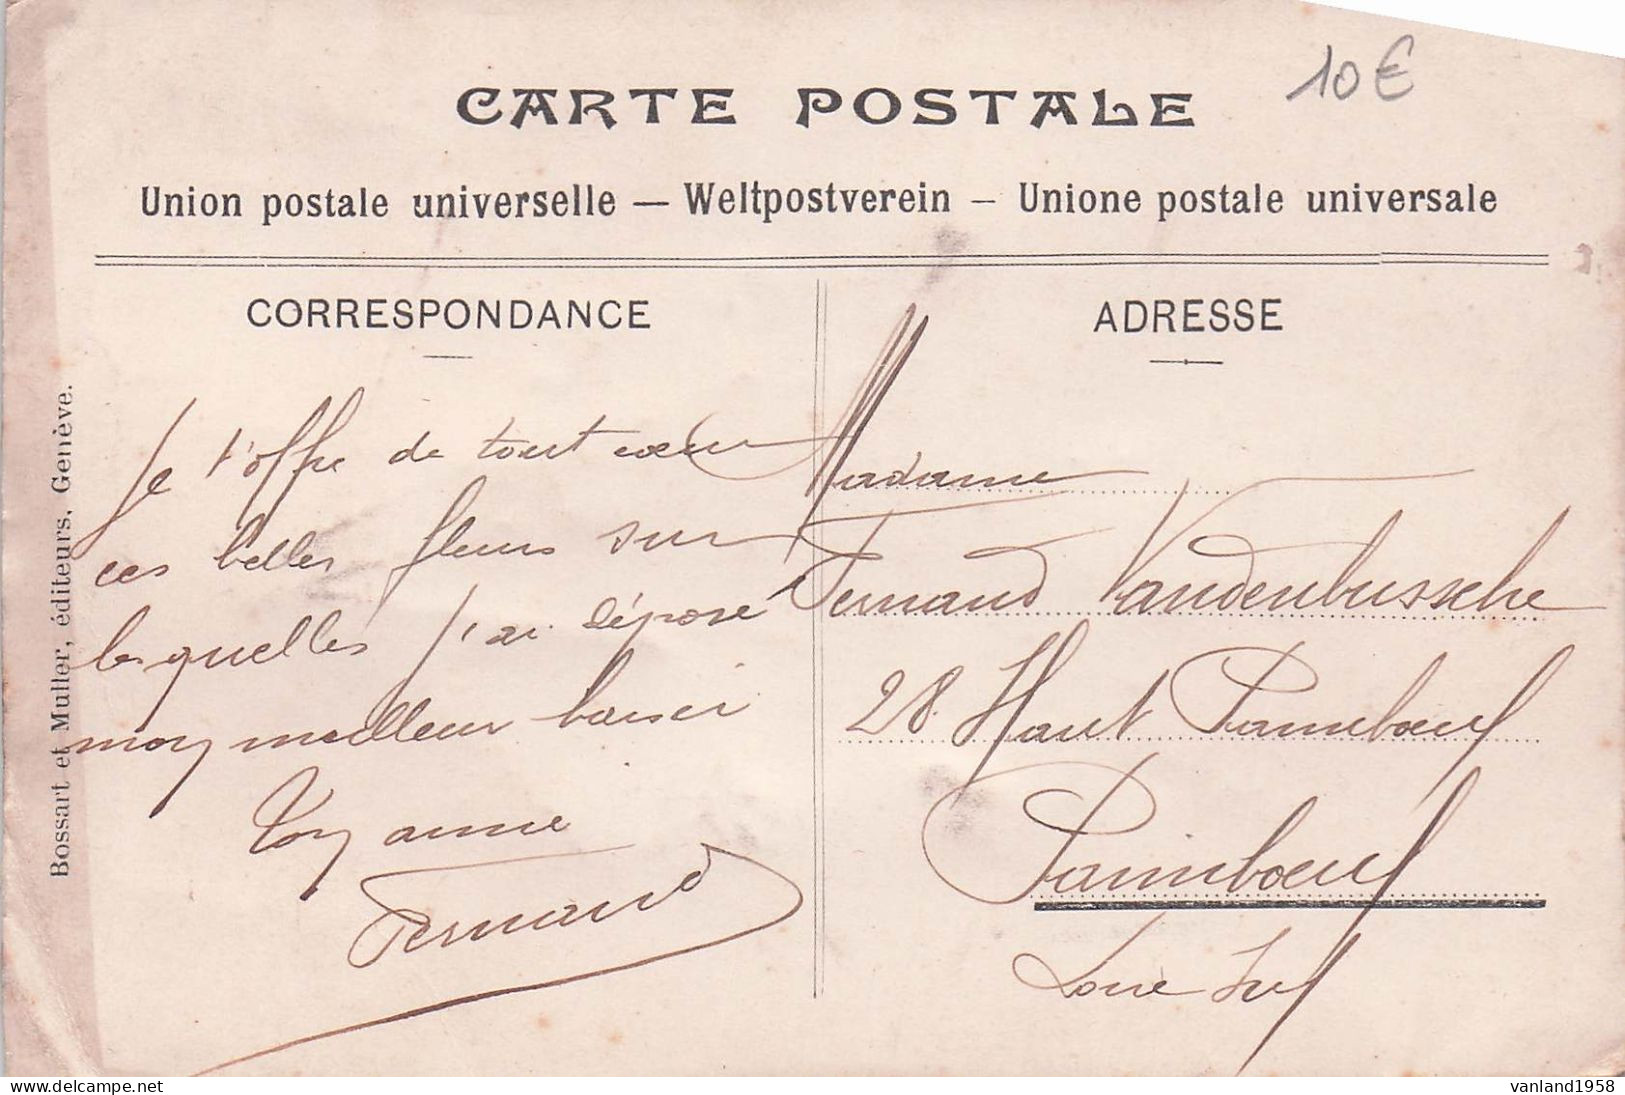 10€
CARTE POSTALE
Union postale universelle — Weltpostverein – Unione postale universale
CORRESPONDANCE
Je t'offre de tout cœur
ces belles fleurs sur
lesquelles j'ai déposé
mon meilleur baiser
Ton aimé
Fernand
ADRESSE
Madame
Fernand Vandenbussche
28 Haut Paimbœuf
Paimbœuf
Loire Inf
Bossart et Muller, éditeurs, Genève.
vanland1958